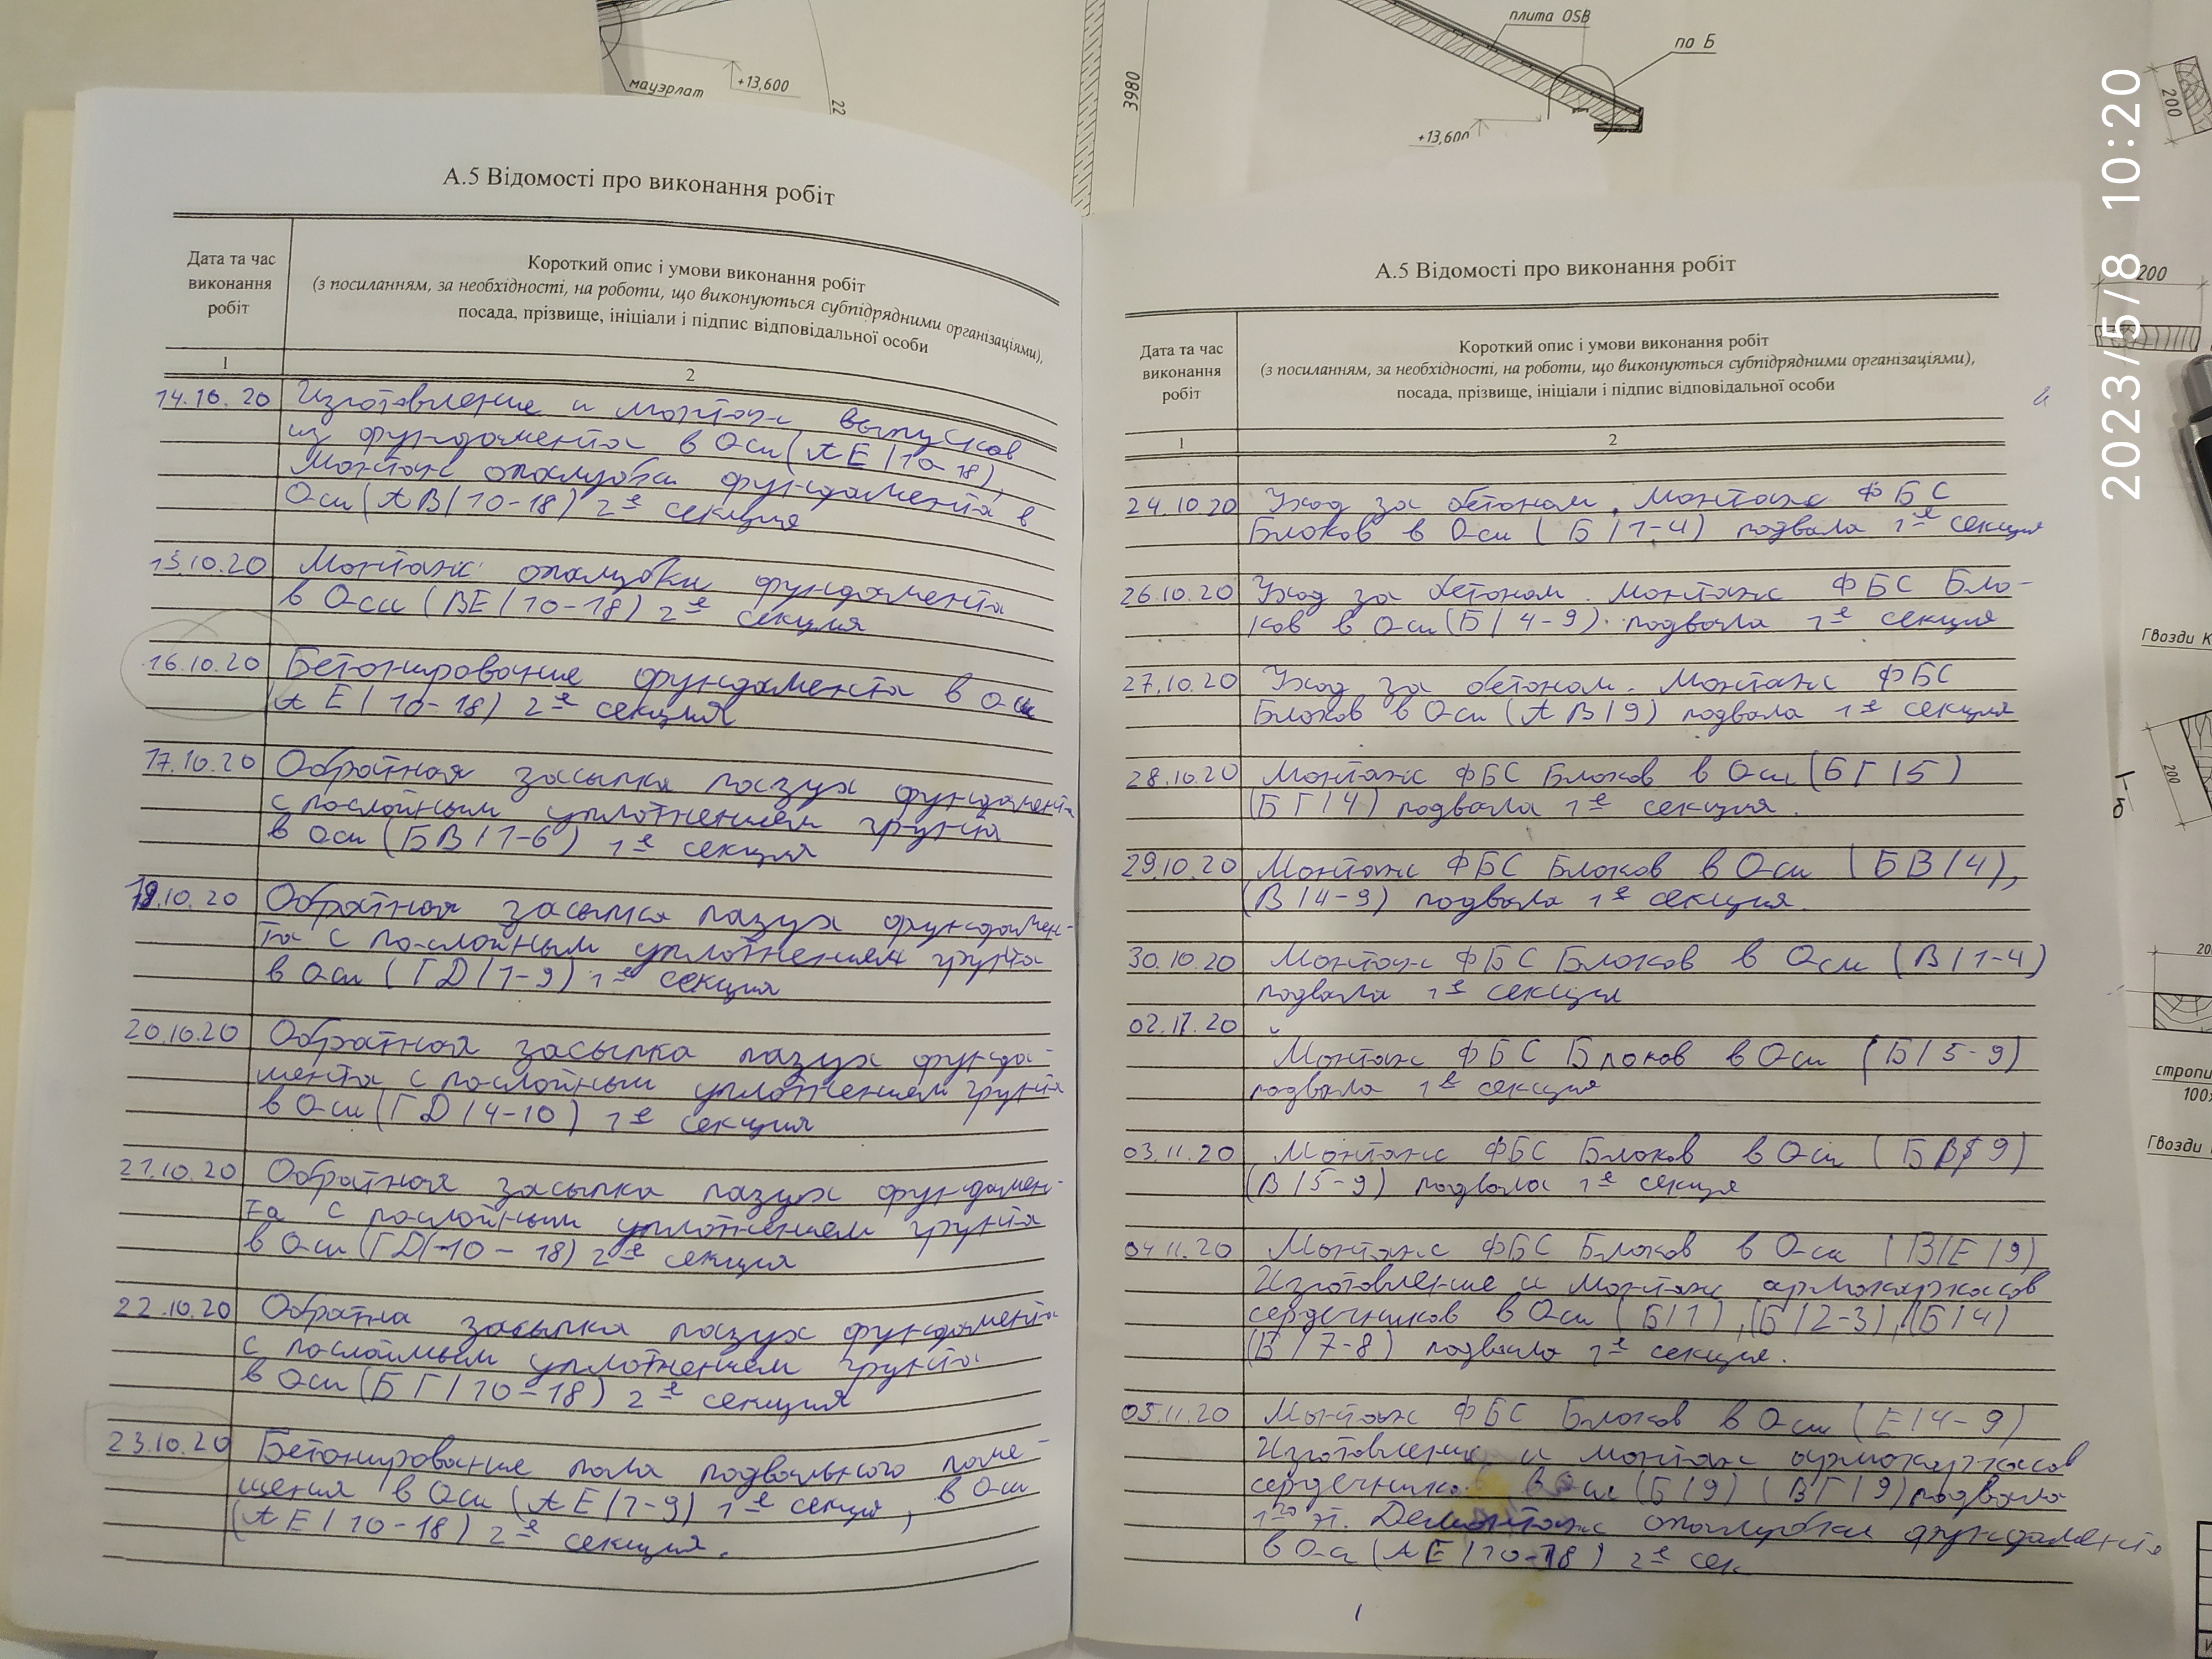 мауэрлат
+13,600
22
3980
плита OSB
по Б
+13,600
200
2023/5/8 10:20
200
Гвозди К
200
стропи
100
Гвозди
А.5 Відомості про виконання робіт
Дата та час виконання робіт
Короткий опис і умови виконання робіт
(з посиланням, за необхідності, на роботи, що виконуються субпідрядними організаціями),
посада, прізвище, ініціали і підпис відповідальної особи
1 2
14.10.20 Изготовление и монтаж выпусков
из фундамента в Оси (АЕ/10-18),
Монтаж опалубки фундамента в
Оси (АВ/10-18) 2я секция
15.10.20 Монтаж опалубки фундамента
в Оси (ВЕ/10-18) 2я секция
16.10.20 Бетонирование фундамента в Оси
(АЕ/10-18) 2я секция
17.10.20 Обратная засыпка пазух фундамента
с послойным уплотнением грунта
в Оси (БВ/1-6) 1я секция
19.10.20 Обратная засыпка пазух фундамен-
та с послойным уплотнением грунта
в Оси (ГД/1-9) 1я секция
20.10.20 Обратная засыпка пазух фунда-
мента с послойным уплотнением грунта
в Оси (ГД/4-10) 1я секция
21.10.20 Обратная засыпка пазух фундамен-
та с послойным уплотнением грунта
в Оси (ГД/10-18) 2я секция
22.10.20 Обратна засыпка пазух фундамента
с послоймым уплотнением грунта
в Оси (БГ/10-18) 2я секция
23.10.20 Бетонирование пола подвального поме-
щения в Оси (АЕ/1-9) 1я секция, в Оси
(АЕ/10-18) 2я секция.
А.5 Відомості про виконання робіт
Дата та час виконання робіт
Короткий опис і умови виконання робіт
(з посиланням, за необхідності, на роботи, що виконуються субпідрядними організаціями),
посада, прізвище, ініціали і підпис відповідальної особи
1 2
24.10.20 Уход за бетоном. Монтаж ФБС
Блоков в Оси (Б/1-4) подвала 1я секция
26.10.20 Уход за бетоном. Монтаж ФБС Бло-
ков в Оси (Б/4-9). подвала 1я секция
27.10.20 Уход за бетоном. Монтаж ФБС
Блоков в Оси (АВ/9) подвала 1я секция
28.10.20 Монтаж ФБС Блоков в Оси (БГ/5)
(БГ/4) подвала 1я секция.
29.10.20 Монтаж ФБС Блоков в Оси (БВ/4),
(В/4-9) подвала 1я секция.
30.10.20 Монтаж ФБС Блоков в Оси (В/1-4)
подвала 1я секция
02.11.20
Монтаж ФБС Блоков в Оси (Б/5-9)
подвала 1я секция
03.11.20 Монтаж ФБС Блоков в Оси (БВ/9)
(В/5-9) подвала 1я секция
04.11.20 Монтаж ФБС Блоков в Оси (В/Е/9)
Изготовление и монтаж армокаркасов
сердечников в Оси (Б/1), (Б/2-3), (Б/4)
(В/7-8) подвала 1я секция.
05.11.20 Монтаж ФБС Блоков в Оси (Е/4-9)
Изготовление и монтаж армокаркасов
сердечника в Оси (Б/9) (ВГ/9) подвала
Демонтаж опалубки фундамента
в Оси (АЕ/10-18) 2я сек.